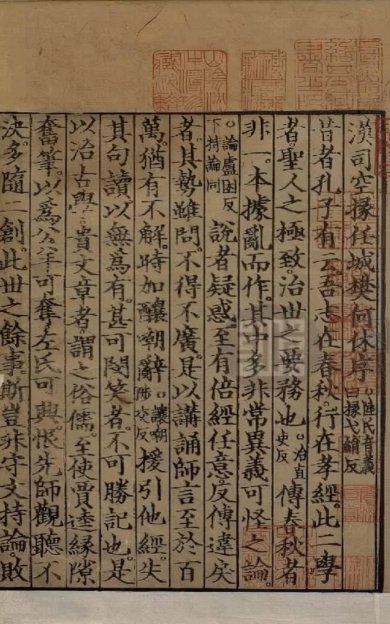 漢司空掾任城樊何休序陸氏音義曰掾弋絹反
昔者孔子有云吾志在春秋行在孝經此二學
者聖人之極致治世之要務也治直吏反傳春秋者
非一本據亂而作其中多非常異義可怪之論
論盧困反下持論同說者疑惑至有倍經任意反傳違戾
者其勢雖問不得不廣是以講誦師言至於百
萬猶有不解時如釀嘲辭釀嘲援引他經失
其句讀以無為有甚可閔笑者不可勝記也是
以治古學貴文章者謂之俗儒至使賈逵緣隙
奮筆以為公羊可奪左氏可興恨先師觀聽不
決多隨二創此世之餘事斯豈非守文持論敗